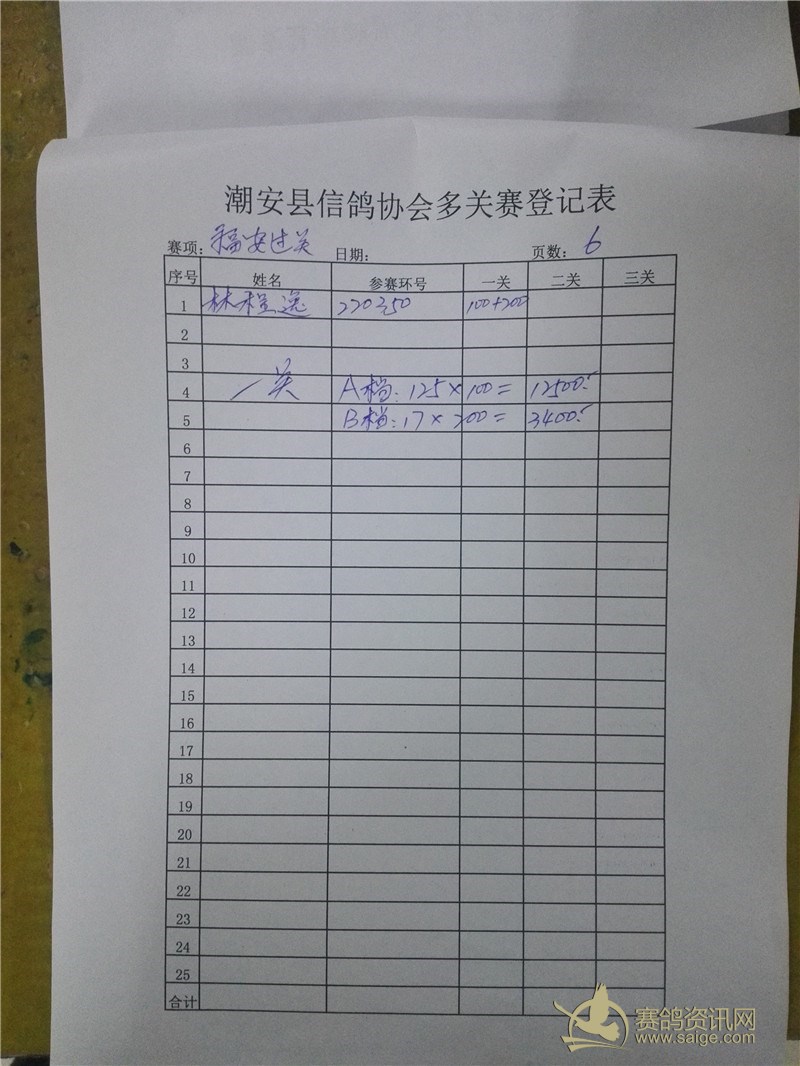 潮安县信鸽协会多关赛登记表
赛项：福安过关 日期： 页数：6
序号 姓名 参赛环号 一关 二关 三关
1 林 逸 220350 100+200
2
3
4 一关 A档：125×100= 12500.-
5 B档：17×200= 3400.-
6
7
8
9
10
11
12
13
14
15
16
17
18
19
20
21
22
23
24
25
合计
赛鸽资讯网
www.saige.com